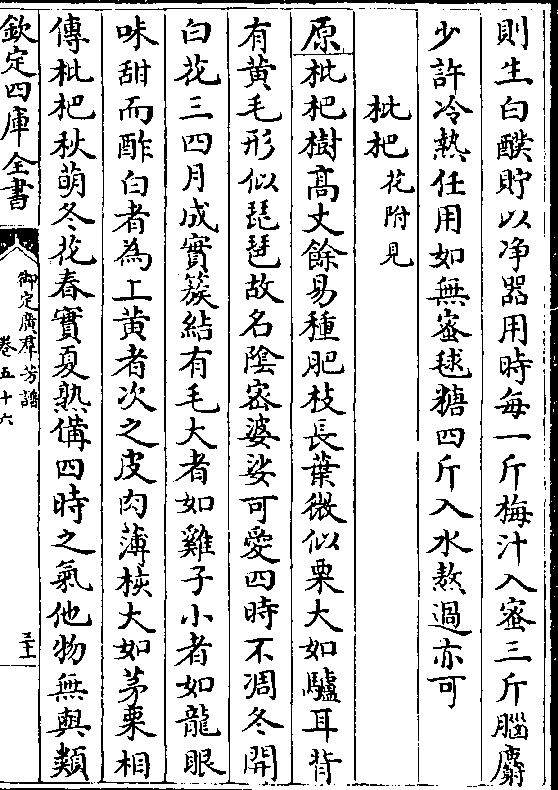 則生白醭貯以净器用時毎一斤梅汁入蜜三斤腦麝
少許冷熱任用如無蜜毬糖四斤入水熬過亦可
枇杷花附見
原枇杷樹髙丈餘易種肥枝長葉微似栗大如驢耳背
有黄毛形似琵琶故名陰宻婆娑可愛四時不凋冬開
白花三四月成實簇結有毛大者如雞子小者如龍眼
味甜而酢白者為上黄者次之皮肉薄核大如茅栗相
傳枇杷秋萌冬花春實夏熟備四時之氣他物無與類
欽定四庫全書
御定廣群芳譜
卷五十六
三十二